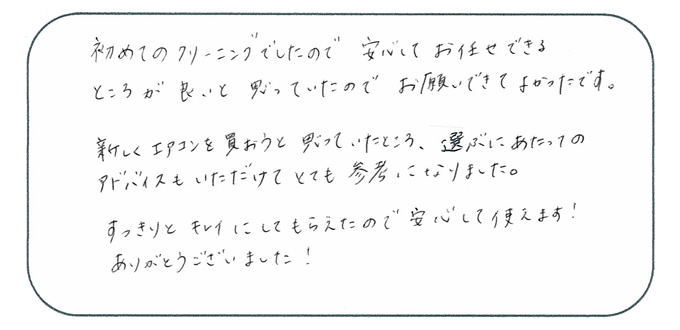 初めてのクリーニングでしたので 安心して お任せできる
ところが 良いと 思っていたので お願いできて よかったです。
新しく エアコンを 買おうと 思っていたところ、選ぶにあたっての
アドバイスも いただけて とても 参考に なりました。
すっきりと キレイに してもらえたので 安心して 使えます!
ありがとうございました!